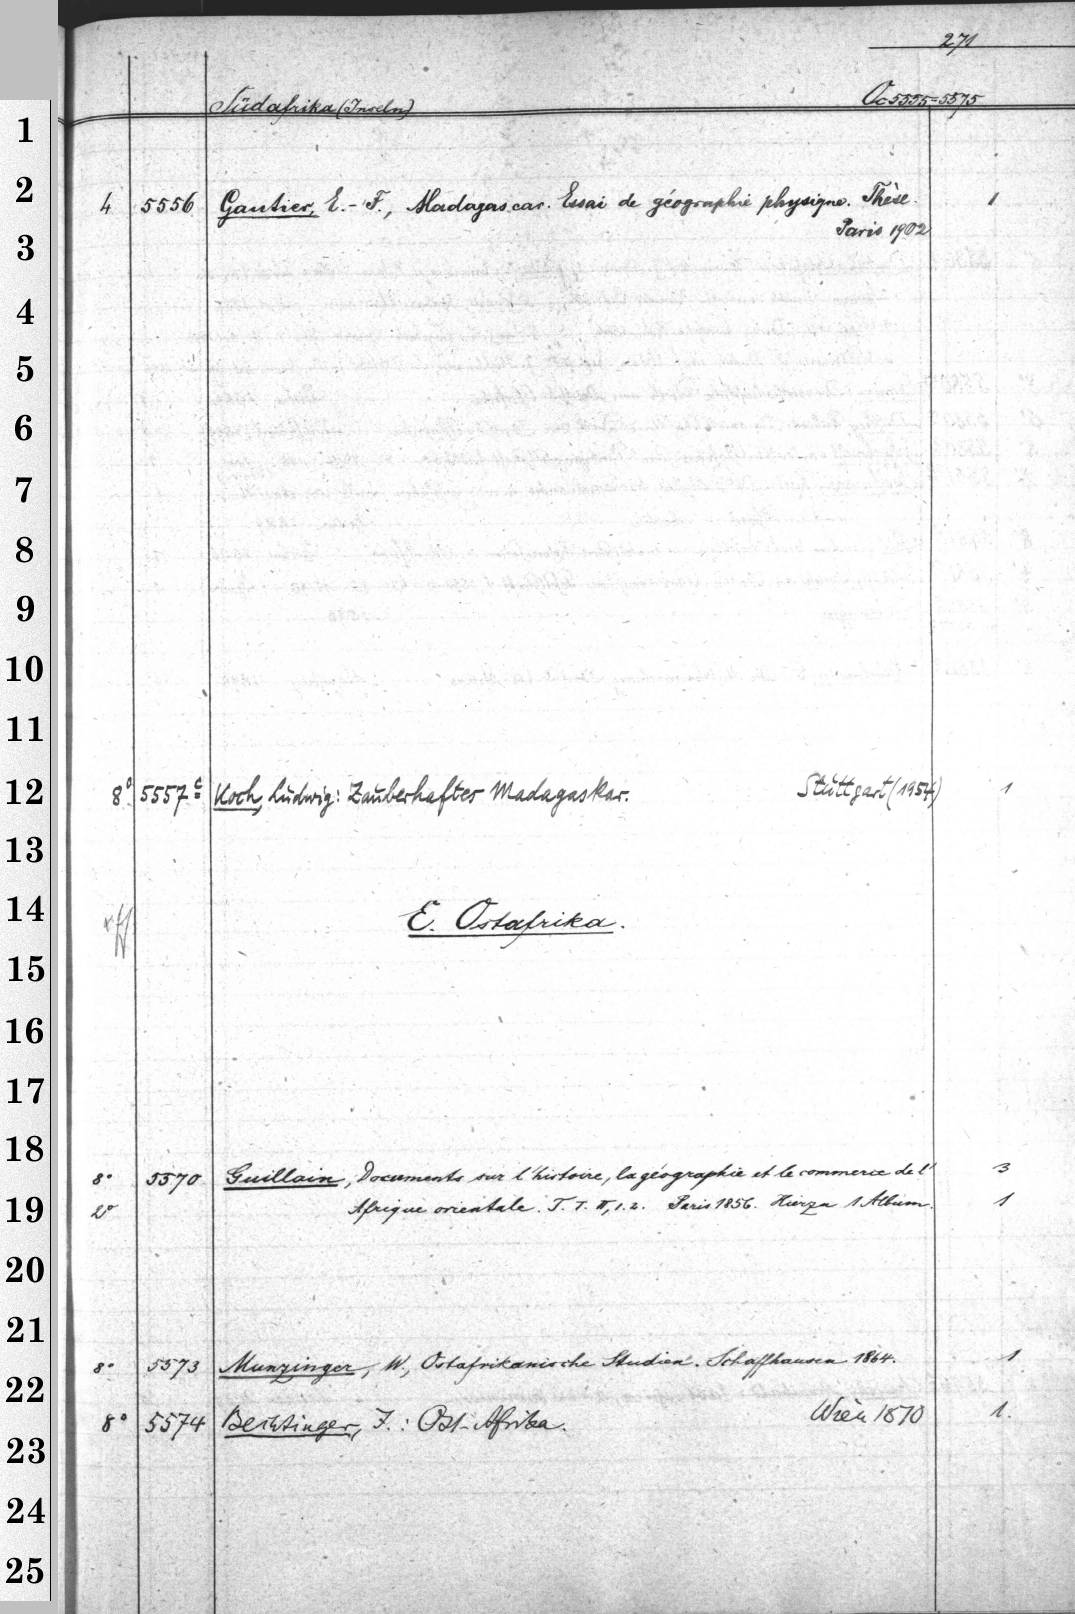 271
Südafrika (Inseln) Oc 5555-5575
1
2
4 5556 Gautier, E.-F., Madagascar. Essai de géographie physique. Thèse. 1
Paris 1902
3
4
5
6
7
8
9
10
11
12
8° 5557c Koch, Ludwig: Zauberhaftes Madagaskar. Stuttgart (1954) 1
13
14
E. Ostafrika.
15
16
17
18
8° 5570 Guillain, Documents sur l'histoire, la géographie et le commerce de l' 3
19
2° Afrique orientale. T. I. II, 1.2. Paris 1856. Hierzu 1 Album. 1
20
21
8° 5573 Munzinger, W., Ostafrikanische Studien. Schaffhausen 1864. 1
22
8° 5574 Bechtinger, J.: Ost-Afrika. Wien 1870 1.
23
24
25